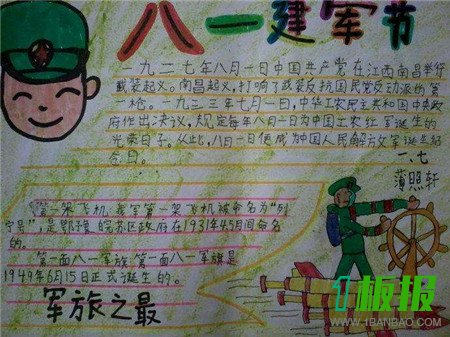 八一建军节
一九二七年八月一日中国共产党在江西南昌举行
武装起义。南昌起义,打响了武装反抗国民党反动派的第
一枪。一九三三年七月一日,中华工农民主共和国中央政
府作出决议,规定每年八月一日为中国工农红军诞生的
光荣日子。从此,八月一日便成为中国人民解放军诞生纪
念日。
一、七
薄照轩
第一架飞机 我军第一架飞机被命名为“列
宁号”,是鄂豫皖苏区政府在1931年4.5月间命名
的。
第一面八一军旗 第一面八一军旗是
1949年6月15日正式诞生的。
军旅之最
1板报
WWW.1BANBAO.COM